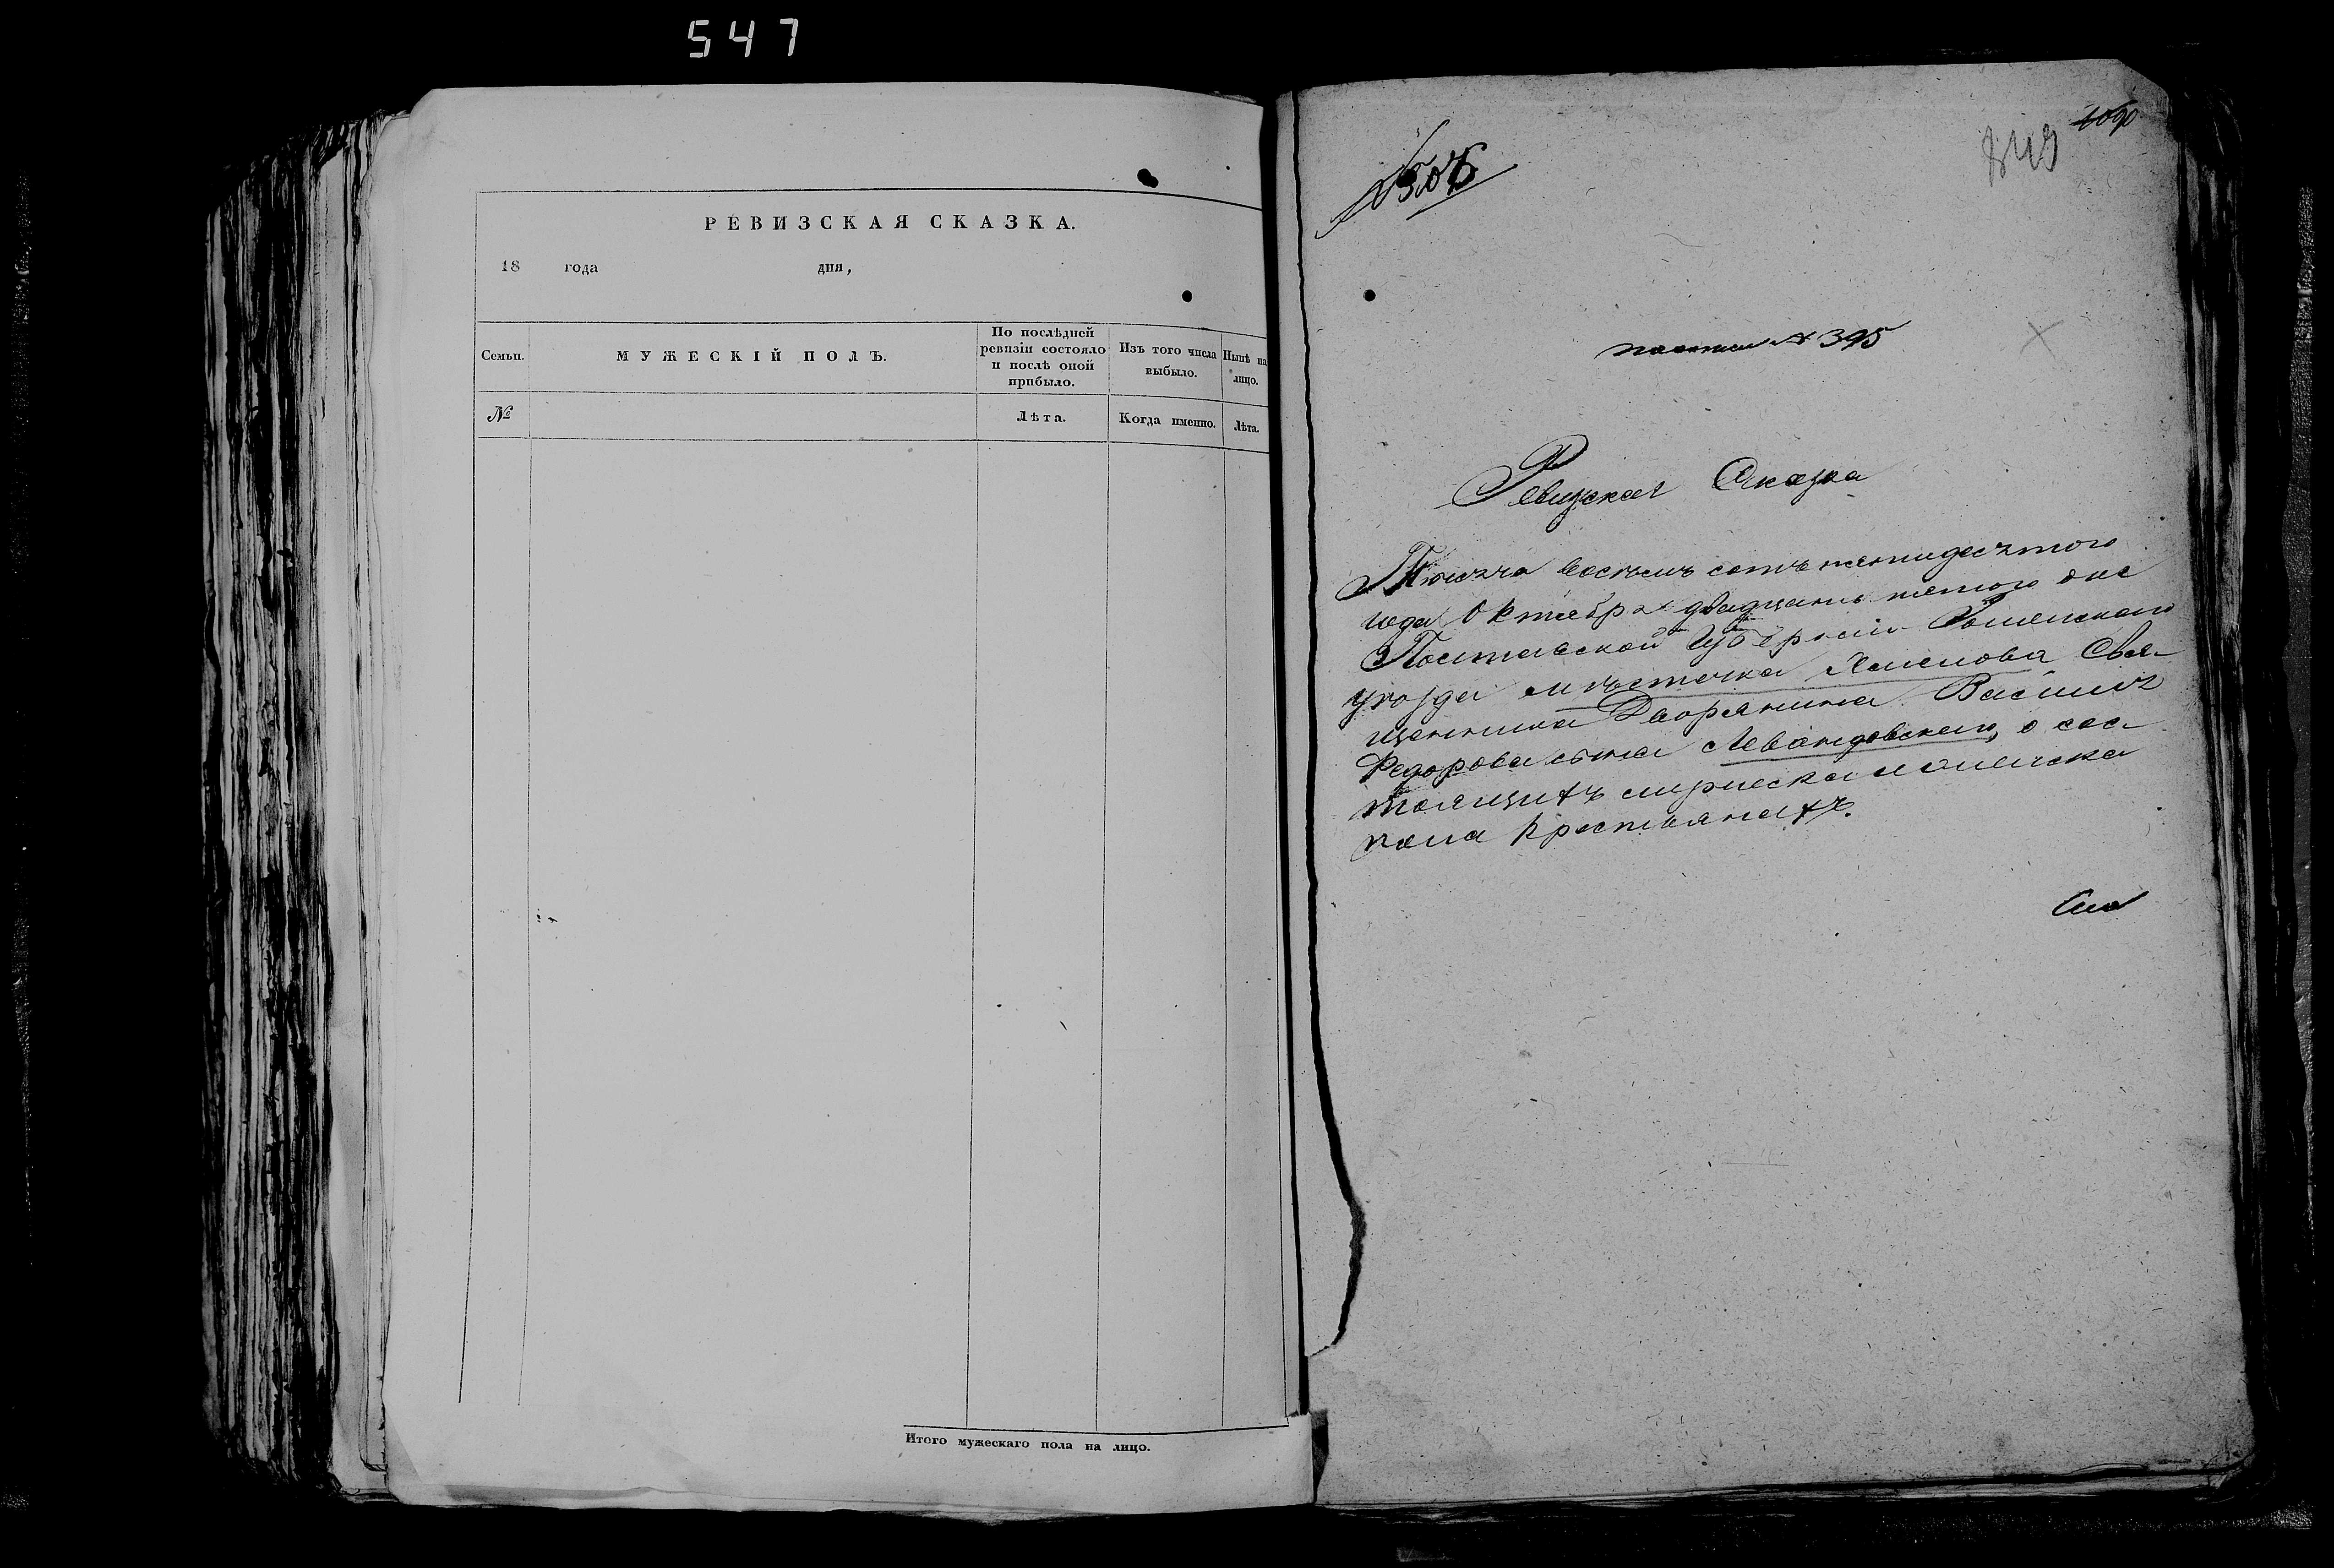 547
РЕВИЗСКАЯ СКАЗКА.
18 года дня,
Семьи.
МУЖЕСКІЙ ПОЛЪ.
По послѣдней
ревизіи состояло
и послѣ оной
прибыло.
Изъ того числа
выбыло.
Нынѣ на
лицо.
№
Лѣта.
Когда именно.
Лѣта.
Итого мужескаго пола на лицо.
849
№ 395
Ревизская Сказка
Тысяча восемь сотъ пятидесятого
года Октября двадцать пятого дня
Полтавской Губерніи Роменскаго
уѣзда мѣстечка Смелова Свя-
щенника Дворянина Василія
Федорова сына Левандовскаго, о сос-
тоящихъ мужеска и женска
пола крестьянахъ.